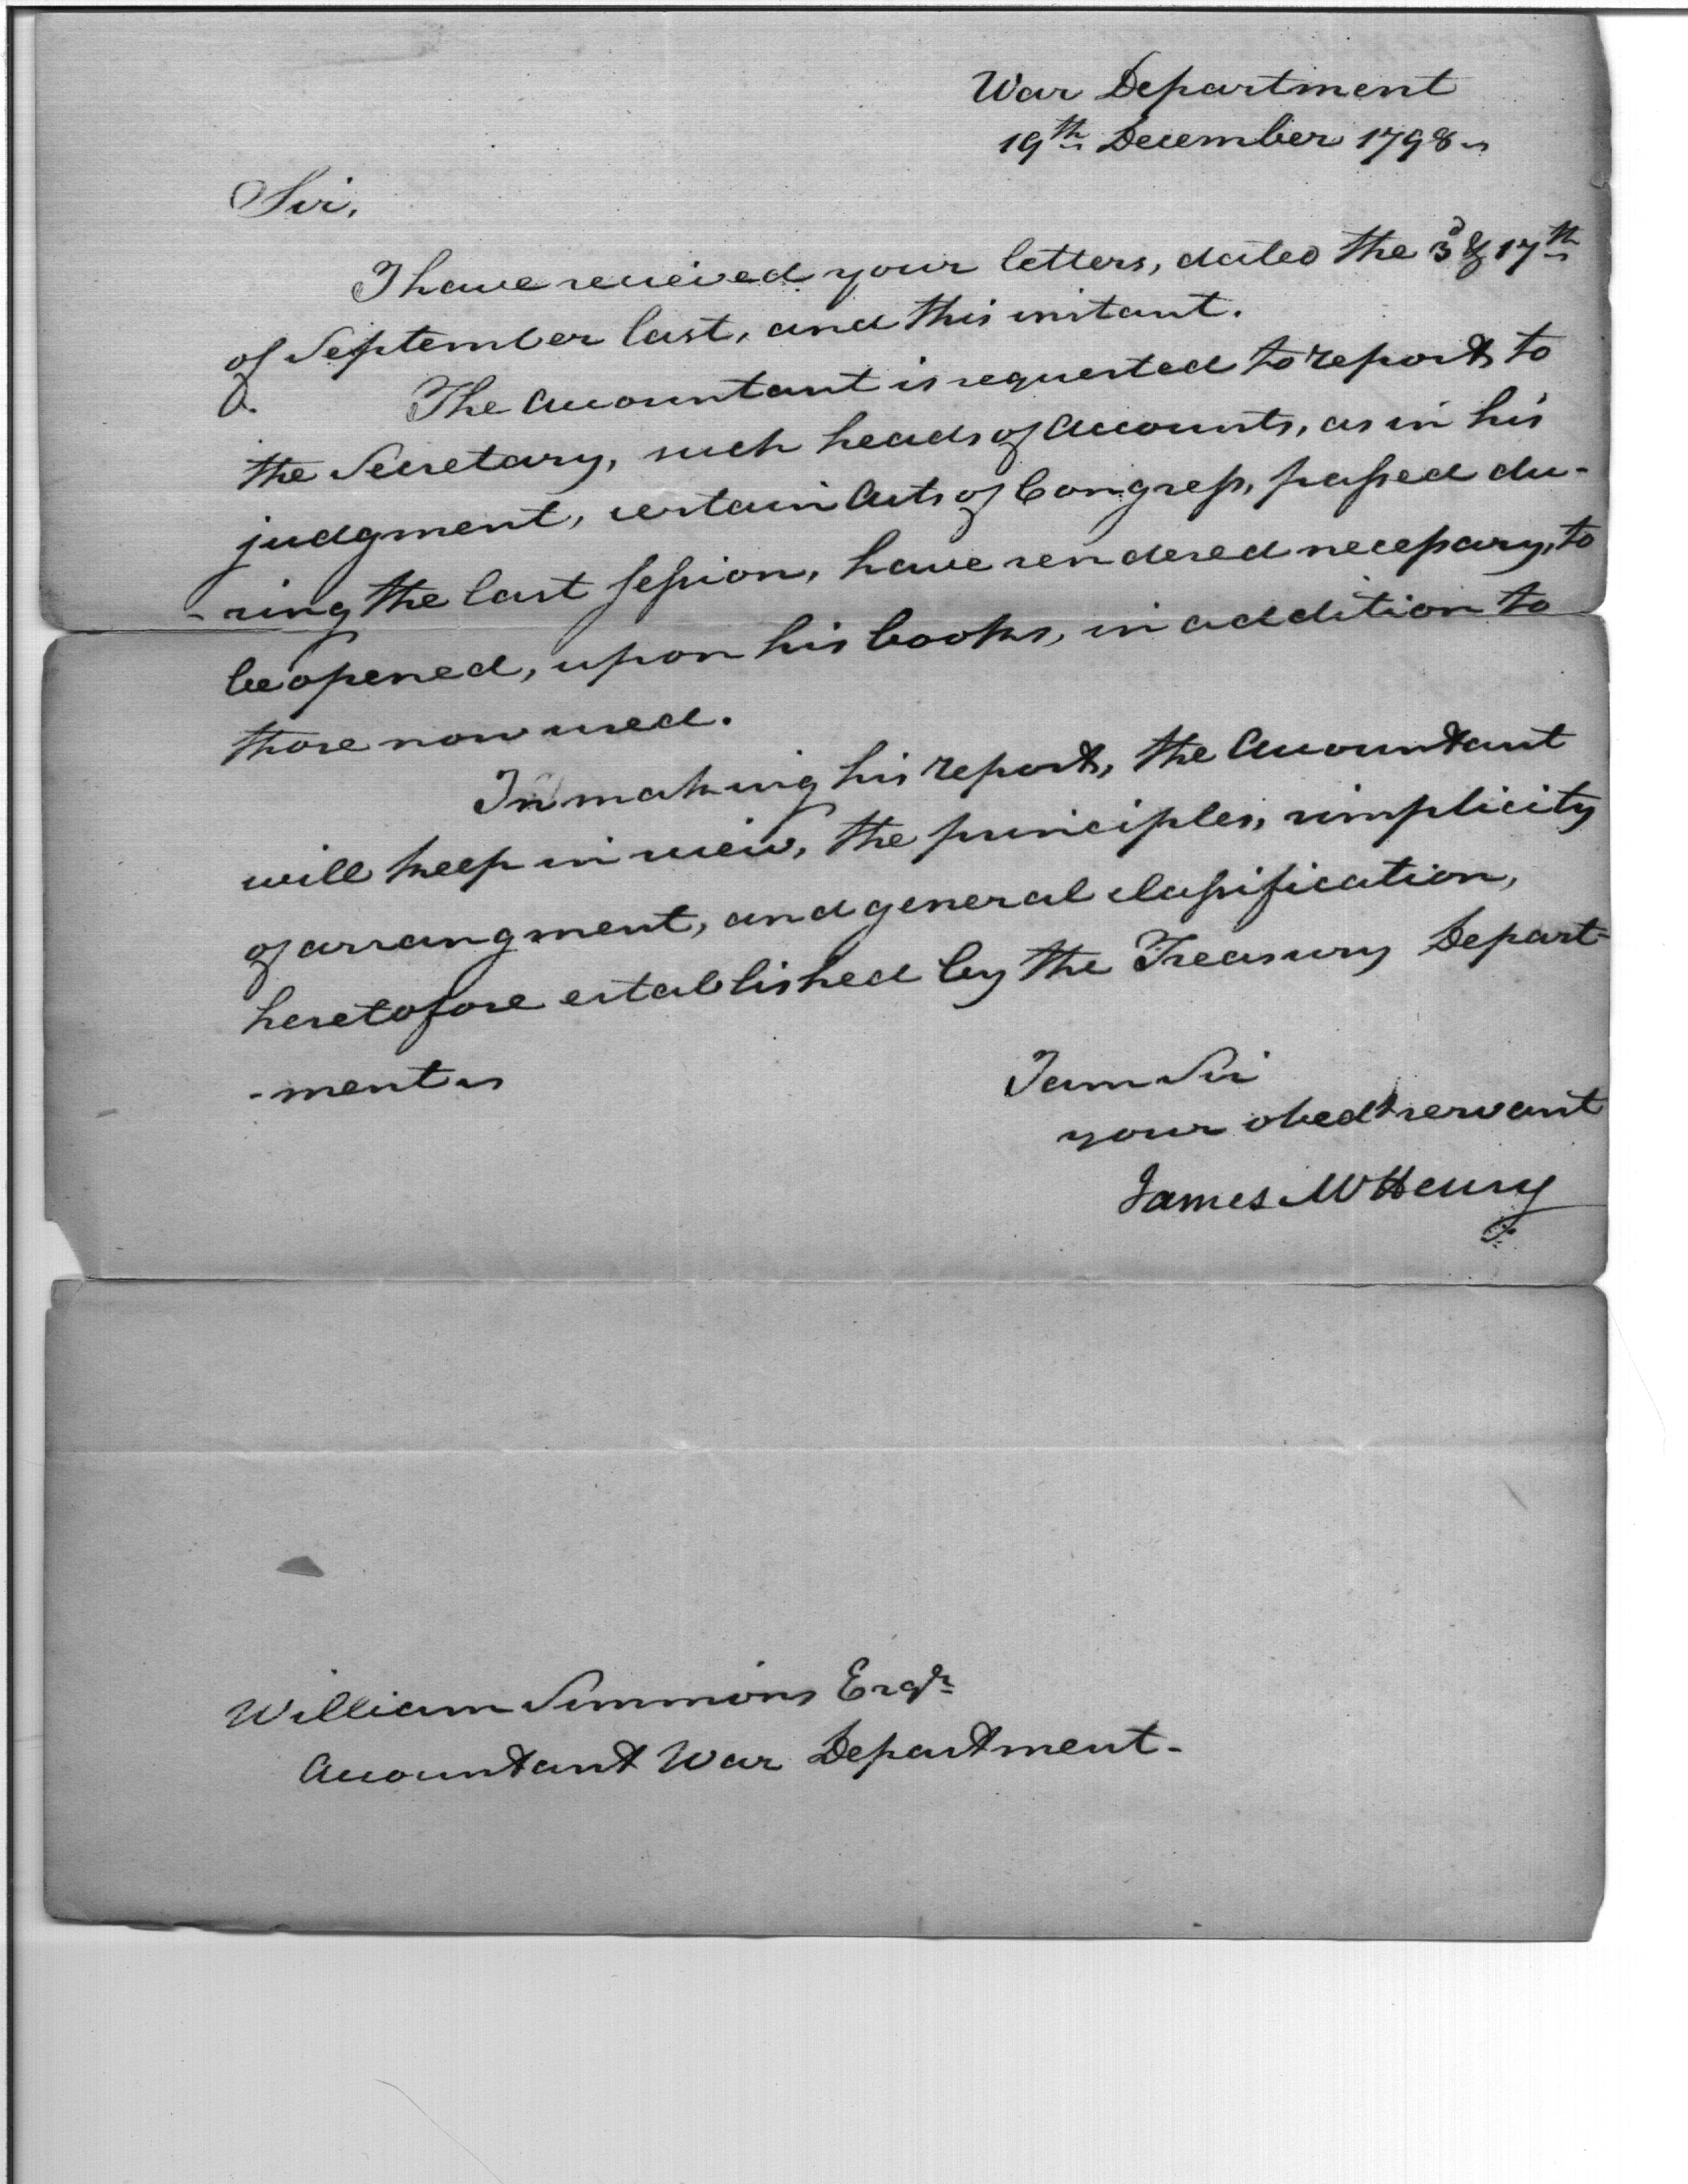 War Department
19th December 1798
Sir,
I have received your letters, dated the 3d & 17th
of September last, and this instant.
The Accountant is requested to report to
the Secretary, such heads of Accounts, as in his
judgment, certain Acts of Congress, passed du-
-ring the last session, have rendered necessary, to
be opened, upon his books, in addition to
those now used.
In making his report, the Accountant
will keep in view, the principles, simplicity
of arrangment, and general classification,
heretofore established by the Treasury Depart-
-ment
I am Sir
your obedt servant
James McHenry
William Simmons Esqr
Accountant War Department-